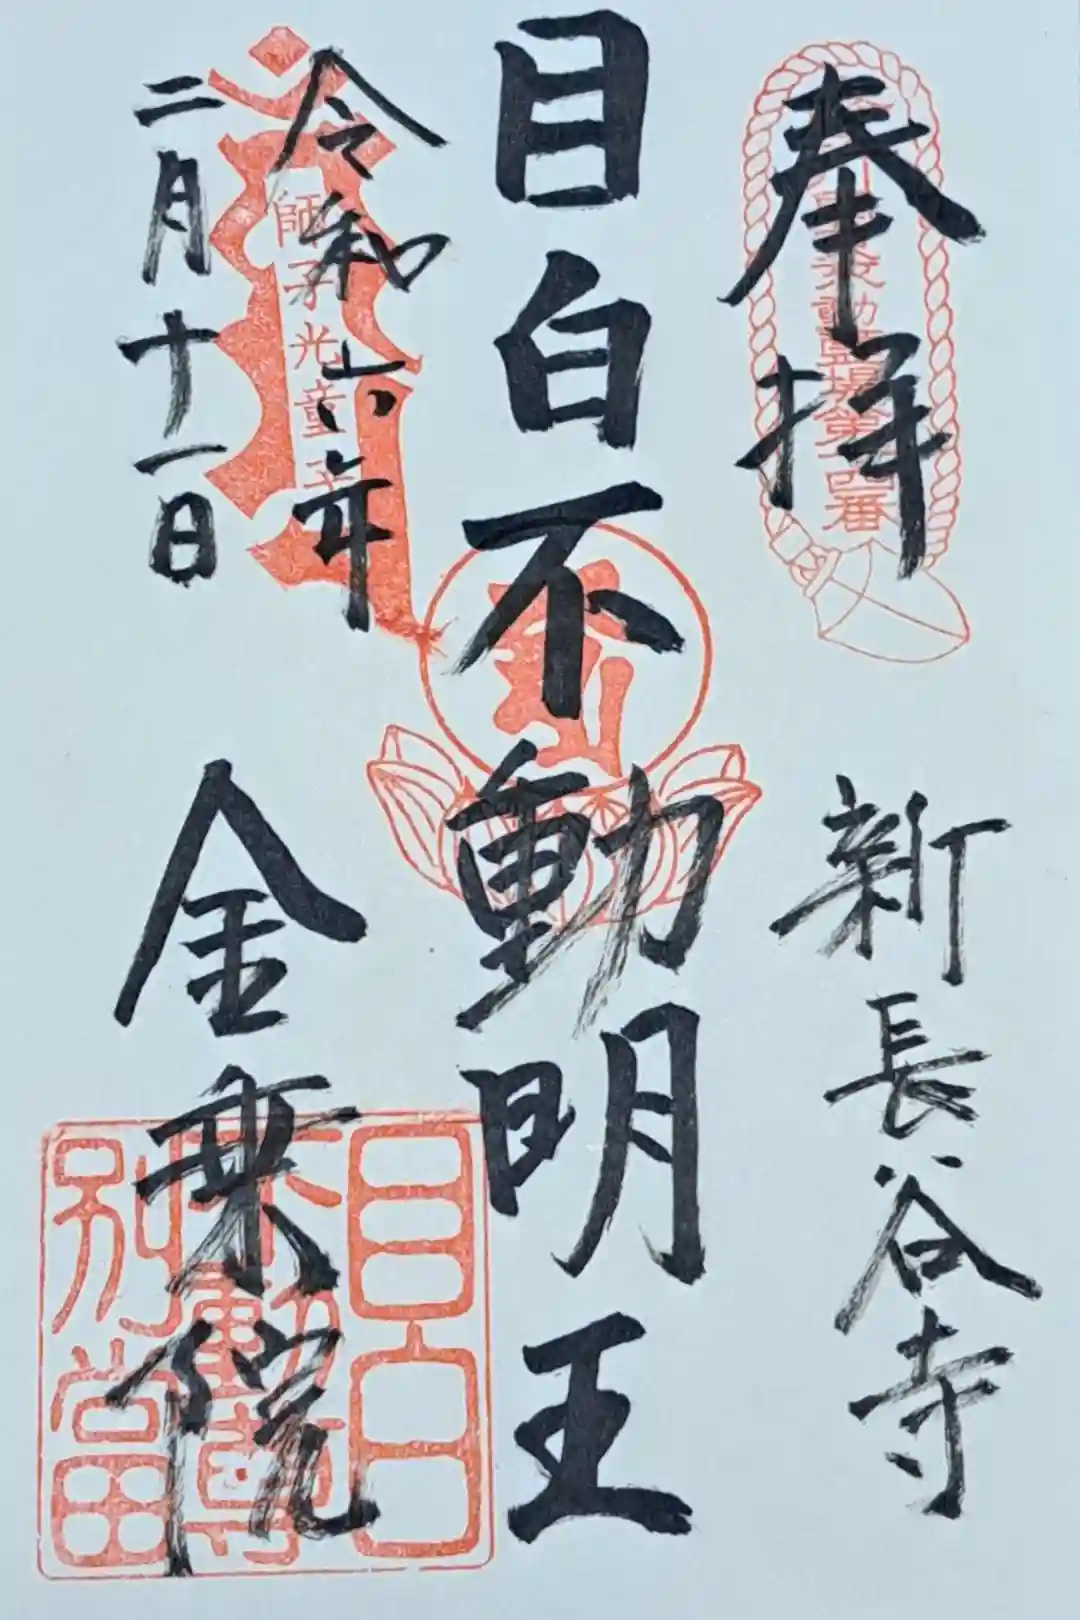 奉拝
新長谷寺
目白不動明王
令和六年
二月十一日
金乗院
師子光童子
目白
不動尊
別當